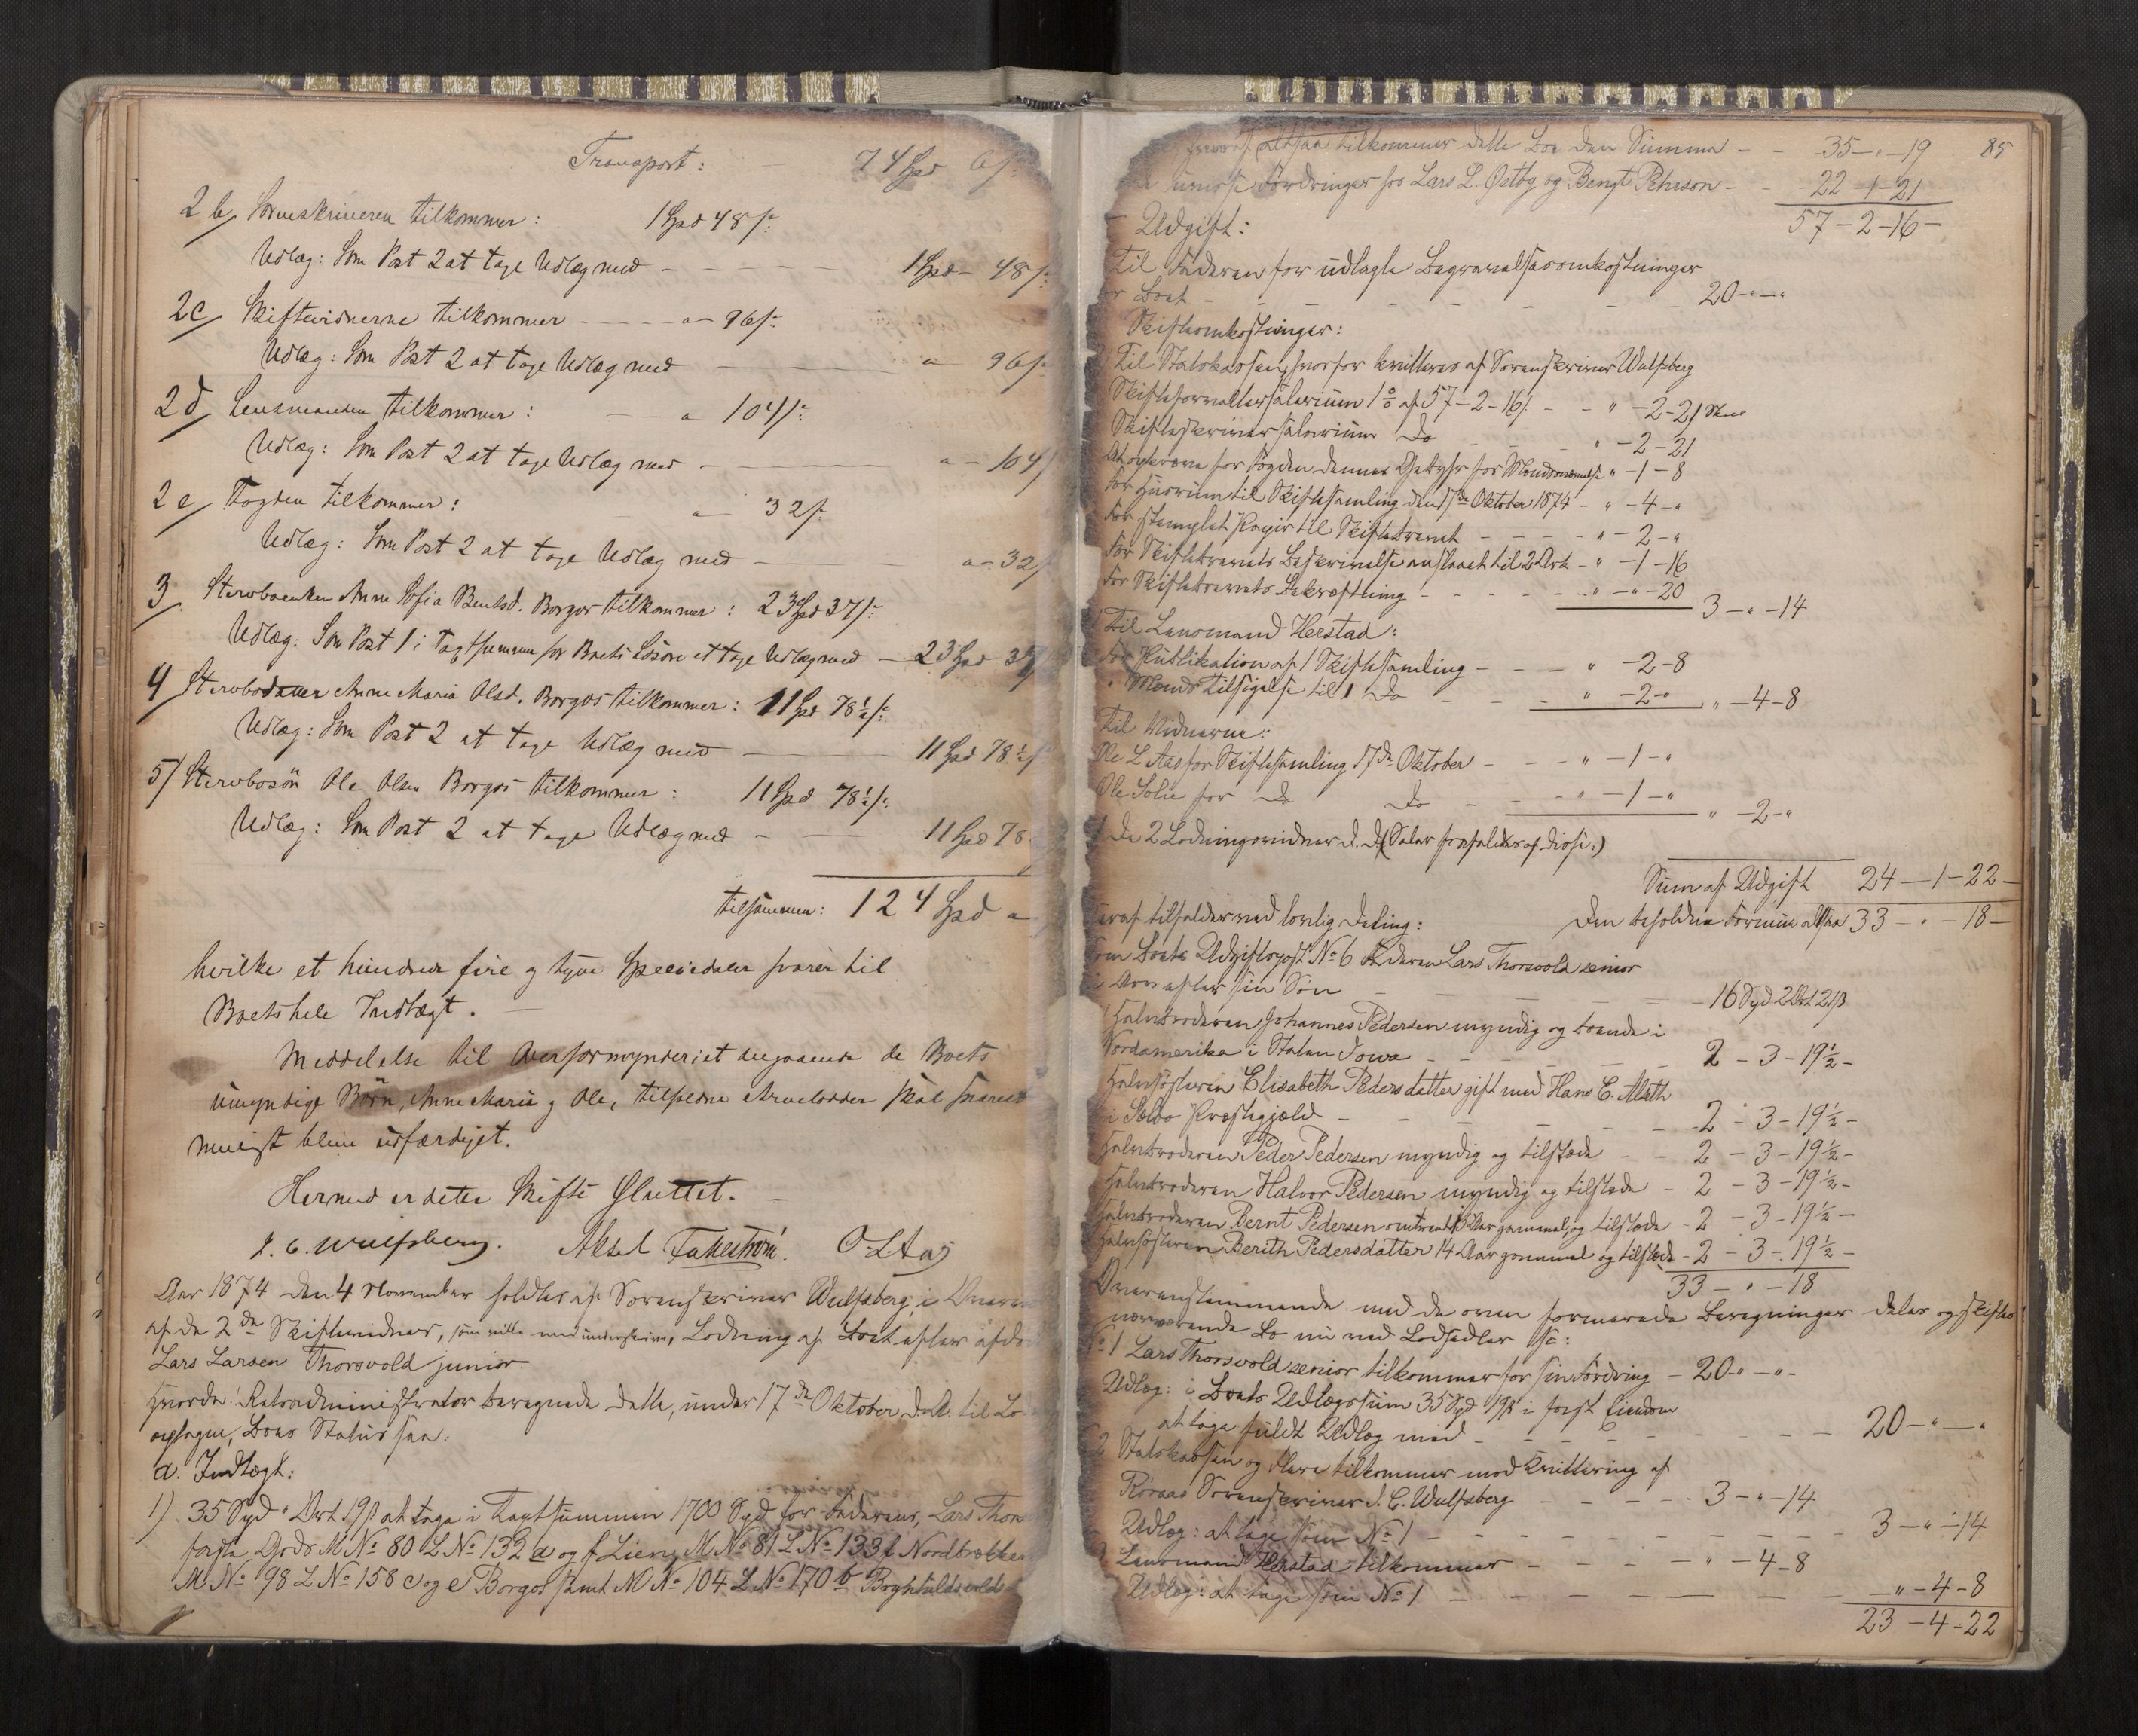 Transport: 74 Spd 6 s:
2 b, Sorenskriveren tilkommer: 1 Spd 48 s:
Udlæg: Som Post 2 at tage Udlæg med - 1 Spd - 48 s:
2c, Skiftevidnerne tilkommer - - - „ - 96 s:
Udlæg: Som Post 2 at tage Udlæg med „ 96 s
2d, Lensmanden tilkommer: - „ 104 s:
Udlæg: Som Post 2 at tage Udlæg med - „ - 104 s
2e, Fogden tilkommer: „ 32 s.
Udlæg: Som Post 2 at tage Udlæg med - „ - 32 s
3, Stervboenken Anne Sofia Bentsd. Borgos tilkommer: 23 Spd 37 s:
Udlæg: Som Post 1 i Taxtsummen for Boets Løsøre at tage Udlæg med - 23 Spd 37
4, Stervbodatter Anne Maria Olsd. Borgos tilkommer: 11 Spd 78½ s:
Udlæg: Som Post 2 at tage Udlæg med 11 Spd 78½ s
5, Stervbosön Ole Olsen Borgos tilkommer: 11 Spd 78½ s:
Udlæg: Som Post 2 at tage Udlæg med - 11 Spd 78
tilsammen: 124 Spd „
hvilke et hundrede fire og tyve Speciedaler svarer til
Boets hele Indtægt. -
Meddelelse til Overformynderiet angaaende de Boets
umyndige Börn, Anne Maria og Ole, tilfaldne Arvelodder skal snarest
muligt blive udfærdiget.
Hermed er dette Skifte Sluttet. -
J. C. Wulfsberg. Aksel Fakström. O L Aas
Aar 1874 den 4 November holdtes af Sorenskriver Wulfsberg, i Overvær
af de 2de Skiftevidner, som ville medunderskrive, Lodning af Boet efter afdøde
Lars Larsen Thorsvold junior.
Hvorda! Retsadministrator beregnede dette, under 17de Oktober d.A. til Lodning
optagne, Boes Status saa:
a. Indtægt:
1) 35 Spd „ Ort 19 s at tage i Taxtsummen 1700 Spd for Faderens, Lars Thors
faste Gods M No 80 L No 132 a og f Lieng M No 81 L No 133 f Nordbrække
M No 98 L No 158 c og e Borgos samt M No 104 L No 170 b
85
hvoraf altsaa tilkommer dette Bo den Summa - - 35 - „ - 19
urisse Fordringer hos Lars L. Østby og Bengt Pehrson - - 22 - 1 - 21
57 - 2 - 16 -
Udgift:
Til Faderen for udlagte Begravelsesomkostninger
for Boet - - - - - - 20 - „ - „
Skifteomkostninger:
Til Statskassen, hvorfor kvitteres af Sorenskriver Wulfsberg
Skifteforvaltersalarium 1 % af 57 - 2 - 16 s. - - „ - 2 - 21
Skifteskriversalarium do - - „ - 2 - 21
At opkræve for Fogden dennes Gebyhr for Mændsopnævnelse „ - 1 - 8
For Huusrum til Skiftesamling den 17de Oktober 1874 - „ - 4 - „
For stemplet Papir til Skiftebrevet - - - - „ - 2 - „
For Skiftebrevets Beskrivelse anslaaet til 2 Ark - „ - 1 - 16
For Skiftebrevets Bekræftning - - - - „ - „ - 20
3 - „ - 14
Til Lensmand Herstad:
For Publikation af 1 Skiftesamling - - - „ - 2 - 8
„ Mænds Tilsigelse til 1 do - - „ - 2 - „
„ - 4 - 8
Til Vidnerne:
Ole L Aas for Skiftesamling 17de Oktober - - - „ - 1 - „
Ole Solie for do do - - - „ - 1 - „
„ - 2 - „
De 2 Lodningsvidner d. d. (Salær frafaldes af disse.)
Sum af Udgift 24 - 1 - 22 -
Den beholdne Formue altsaa 33 - „ - 18 -
heraf tilfalder ved lovlig Deling:
som Boets Udgiftspost No 6 Faderen Lars Thorsvold senior
i Arv efter sin Søn - - - - - 16 Spd 2 Ort 21 s
Halvbroderen Johannes Pedersen myndig og boende i
Nordamerika i Staten Iowa - - - - 2 - 3 - 19½ -
Halvsøsteren Elisabeth Pedersdatter gift med Hans C. Alseth
i Selbo Præstegjeld - - - - - 2 - 3 - 19½ -
Halvbroderen Peder Pedersen myndig og tilstede - - 2 - 3 - 19½ -
Halvbroderen Halvor Pedersen myndig og tilstede - 2 - 3 - 19½ -
Halvbroderen Bernt Pedersen omtrent Aar gammel, og tilstede - 2 - 3 - 19½ -
Halvsøsteren Berith Pedersdatter 14 Aar gammel og tilstede - 2 - 3 - 19½ -
33 - „ - 18
Overenstemmende med de oven formerede Beregninger deles og skiftes
nærværende Bo nu ved Lodsedler saa:
No 1 Lars Thorsvold senior tilkommer for sin Fordring - 20 - „ - „ -
Udlæg: i Boets Udlægssum 35 Spd 19 s i fast Eiendom
at tage fuldt Udlæg med - - - - - - - - 20 - „ - „
2 Statskassen og flere tilkommer mod Kvittering af
Röraas Sorenskriver J. C. Wulfsberg - - - - 3 - „ - 14
Udlæg: at tage som No 1 - - - - - - - - - - 3 - „ - 14
3 Lensmand Herstad tilkommer - - - - „ - 4 - 8
Udlæg: at tage som No 1 - - - - - - - - - „ - 4 - 8
23 - 4 - 22